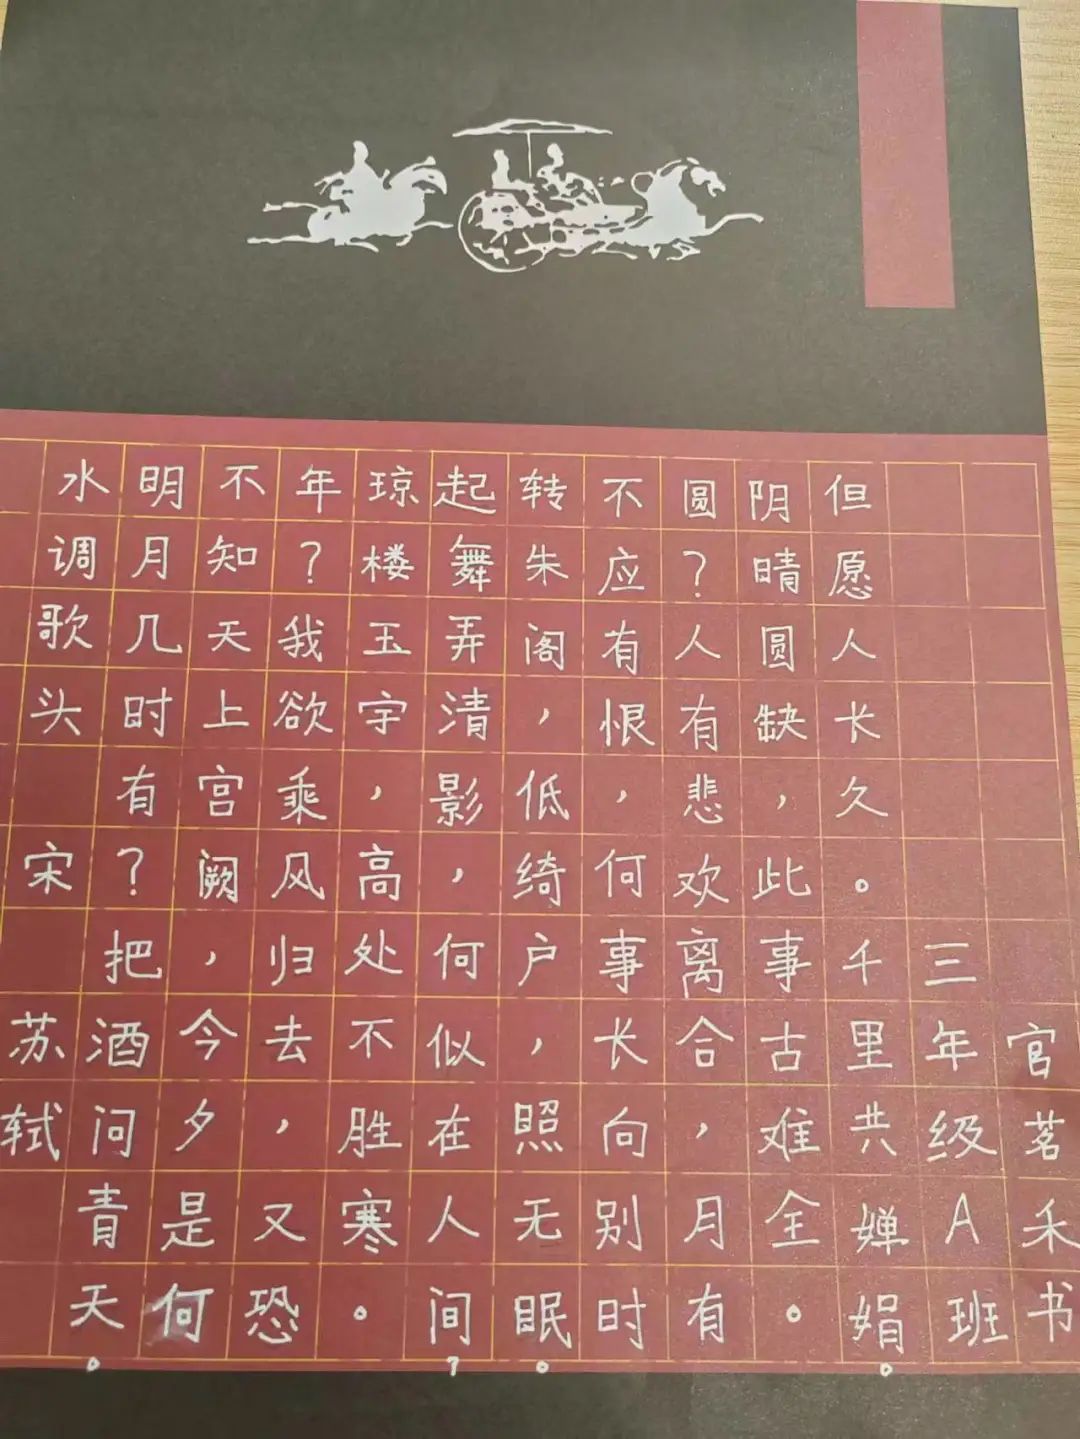 水调歌头 宋 苏轼
明月几时有？把酒问青天。
不知天上宫阙，今夕是何
年？我欲乘风归去，又恐
琼楼玉宇，高处不胜寒。
起舞弄清影，何似在人间？
转朱阁，低绮户，照无眠。
不应有恨，何事长向别时
圆？人有悲欢离合，月有
阴晴圆缺，此事古难全。
但愿人长久。千里共婵娟。
三年级A班
官茗禾书